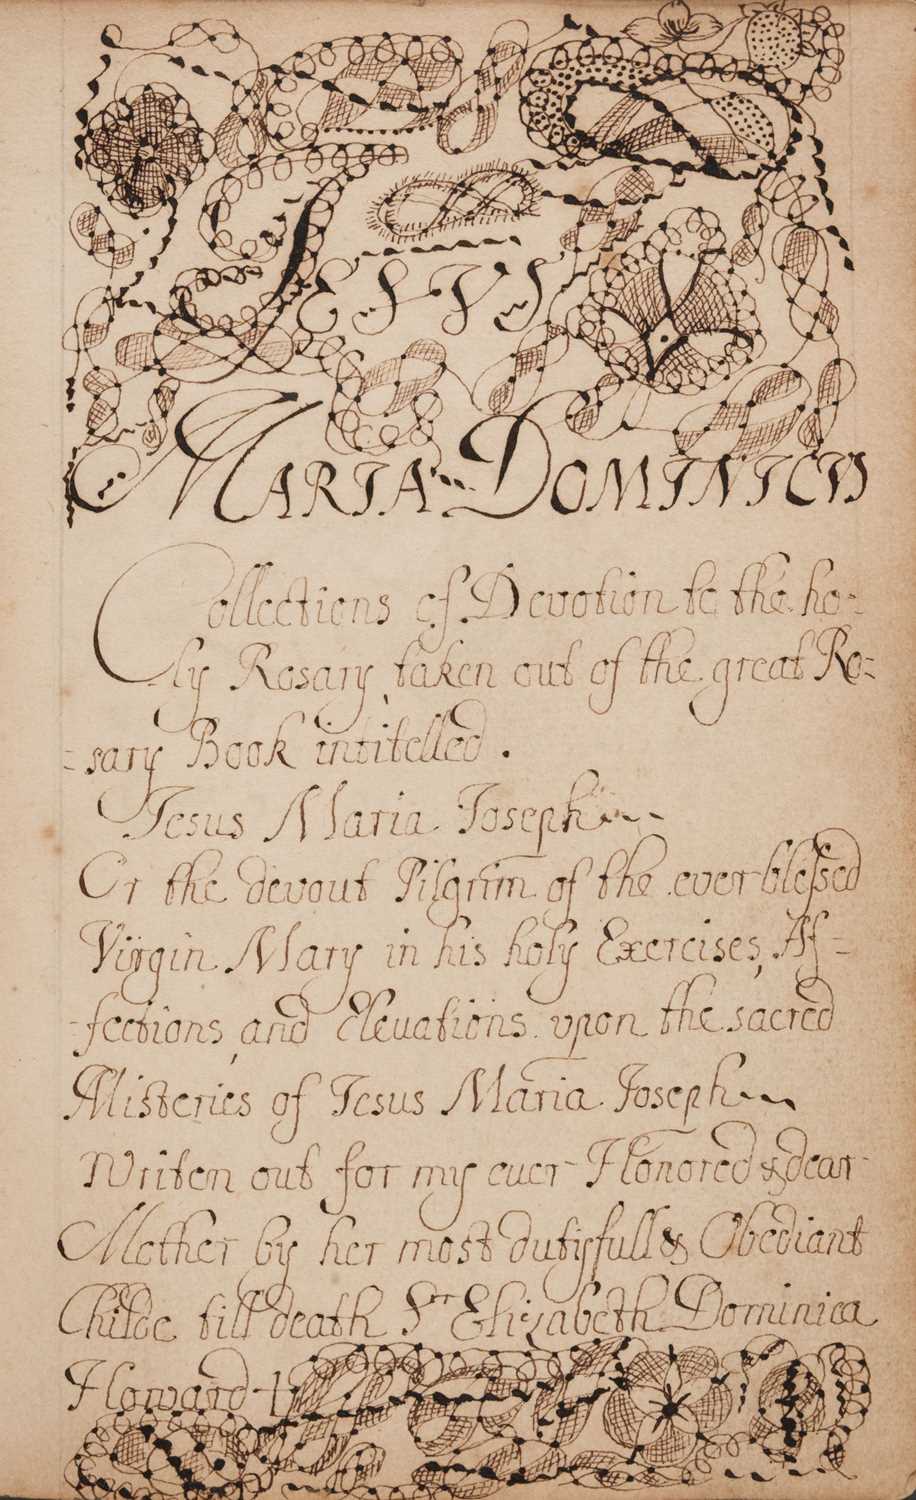 JESVS
MARIA DOMINICVS
Collections of Devotion to the ho-
ly Rosary, taken out of the great Ro-
-sary Book intitelled.
Jesus Maria Joseph
Or the devout Pilgrim of the ever blessed
Virgin Mary in his holy Exercises, Af-
-fections, and Eleuations vpon the sacred
Misteries of Jesus Maria Joseph
Writen out for my euer Honored & dear
Mother by her most dutyfull & Obediant
Childe till death Sr Elizabeth Dominica
Howard +